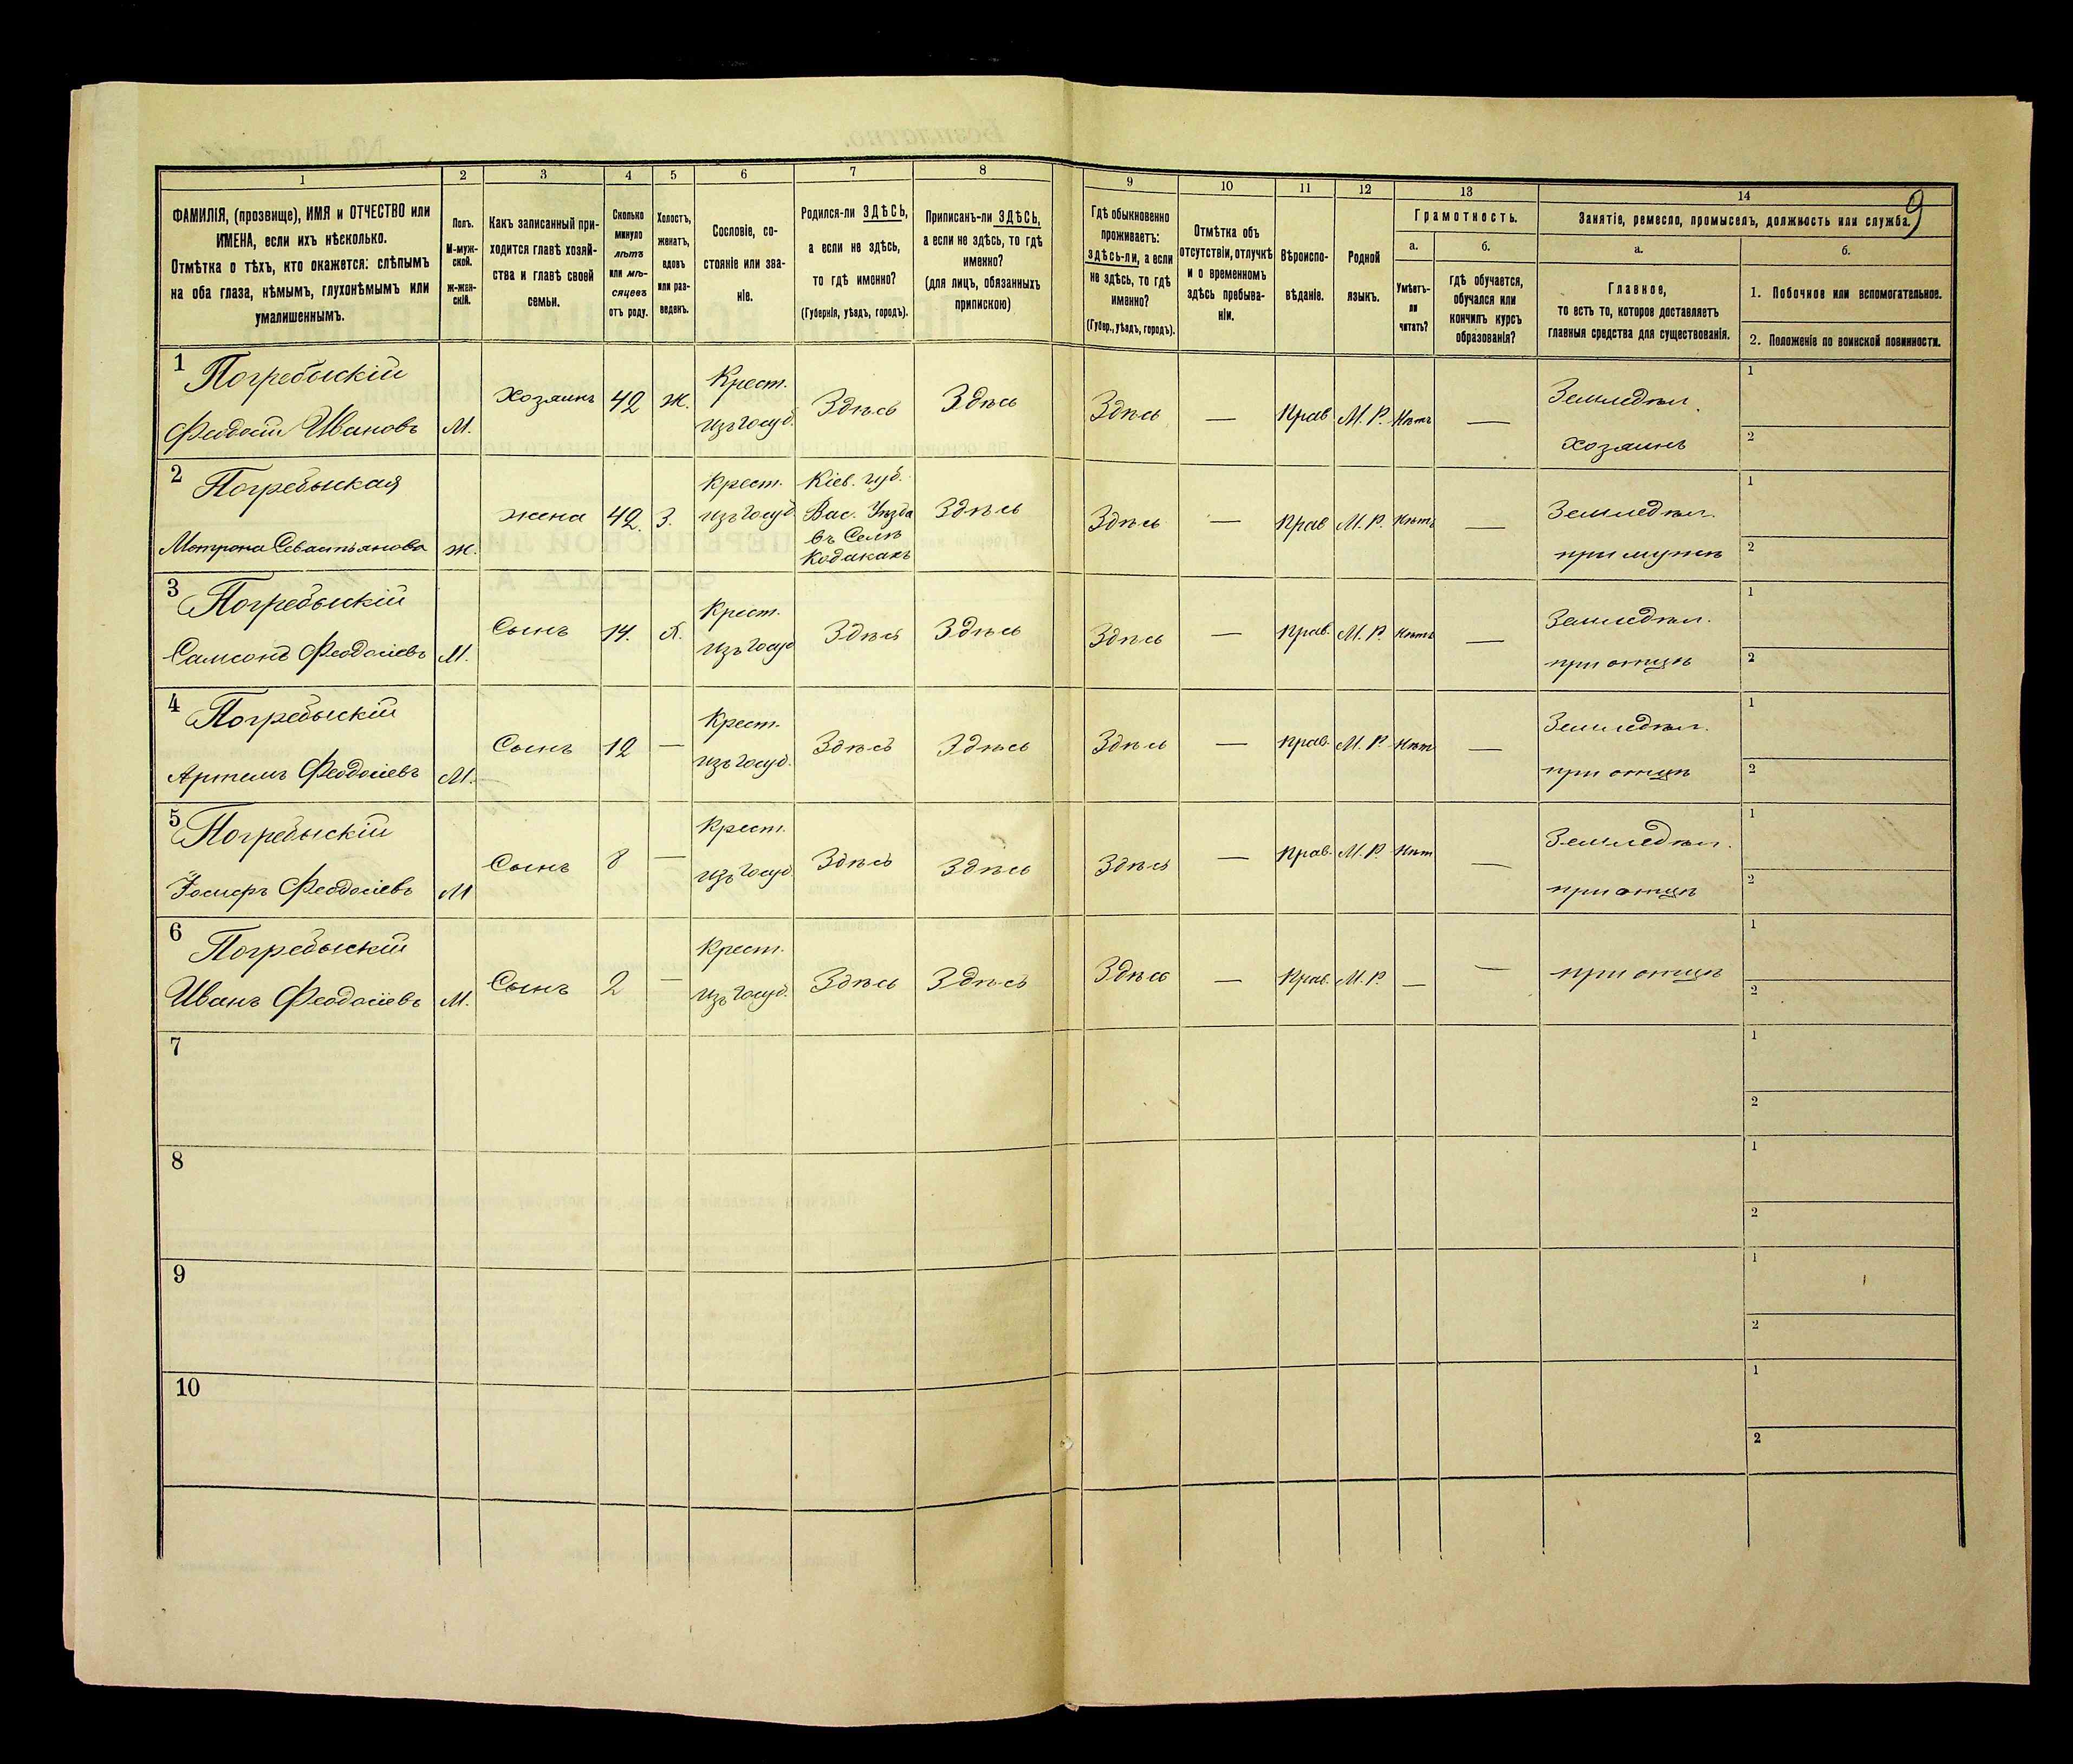 9
1
2
3
4
5
6
7
8
9
10
11
12
13
14
ФАМИЛІЯ, (прозвище), ИМЯ и ОТЧЕСТВО или
ИМЕНА, если ихъ нѣсколько.
Отмѣтка о тѣхъ, кто окажется: слѣпымъ
на оба глаза, нѣмымъ, глухонѣмымъ или
умалишеннымъ.
Полъ.
М-муж-
ской.
ж-жен-
скій.
Какъ записанный при-
ходится главѣ хозяй-
ства и главѣ своей
семьи.
Сколько
минуло
лѣтъ
или мѣ-
сяцевъ
отъ роду.
Холостъ,
женатъ,
вдовъ
или раз-
веденъ.
Сословіе, со-
стояніе или зва-
ніе.
Родился-ли ЗДѢСЬ,
а если не здѣсь,
то гдѣ именно?
(Губернія, уѣздъ, городъ).
Приписанъ-ли ЗДѢСЬ,
а если не здѣсь, то гдѣ
именно?
(для лицъ, обязанныхъ
припискою)
Гдѣ обыкновенно
проживаетъ:
здѣсь-ли, а если
не здѣсь, то гдѣ
именно?
(Губер., уѣздъ, городъ).
Отмѣтка объ
отсутствіи, отлучкѣ
и о временномъ
здѣсь пребыва-
ніи.
Вѣроиспо-
вѣданіе.
Родной
языкъ.
Грамотность.
а.
Умѣетъ-
ли
читать?
б.
гдѣ обучается,
обучался или
кончилъ курсъ
образованія?
Занятіе, ремесло, промыселъ, должность или служба.
а.
Главное,
то есть то, которое доставляетъ
главныя средства для существованія.
б.
1. Побочное или вспомогательное.
2. Положеніе по воинской повинности.
1
Погребыскій
Феодосій Ивановъ
М.
хозяинъ
42
Ж.
Крест.
изъ госуд.
Здѣсь
Здѣсь
Здѣсь
—
Прав
М. Р.
Нѣтъ
—
Земледѣл.
хозяинъ
1
2
2
Погребыская
Мотрона Севастьянова
ж.
жена
42.
З.
Крест.
изъ госуд.
Кіев. губ.
Вас. Уѣзда
въ Селѣ
Кодакахъ
Здѣсь
Здѣсь
—
Прав
М. Р.
Нѣтъ
—
Земледѣл.
при мужѣ
1
2
3
Погребыскій
Самсонъ Феодосіевъ
М.
Сынъ
14.
Х.
Крест.
изъ госуд
Здѣсь
Здѣсь
Здѣсь
—
Прав.
М. Р.
Нѣтъ
—
Земледѣл.
при отцѣ
1
2
4
Погребыскій
Артемъ Феодосіевъ
М.
Сынъ
12
—
Крест.
изъ госуд.
Здѣсь
Здѣсь
Здѣсь
—
Прав.
М. Р.
Нѣт
—
Земледѣл.
при отцѣ
1
2
5
Погребыскій
Іосифъ Феодосіевъ
М
Сынъ
8
—
Крест.
изъ госуд
Здѣсь
Здѣсь
Здѣсь
—
Прав.
М. Р.
Нѣт
—
Земледѣл.
при отцѣ
1
2
6
Погребыскій
Иванъ Феодосіевъ
М.
Сынъ
2
—
Крест.
изъ госуд.
Здѣсь
Здѣсь
Здѣсь
—
Прав.
М. Р.
—
—
при отцѣ
1
2
7
1
2
8
1
2
9
1
2
10
1
2